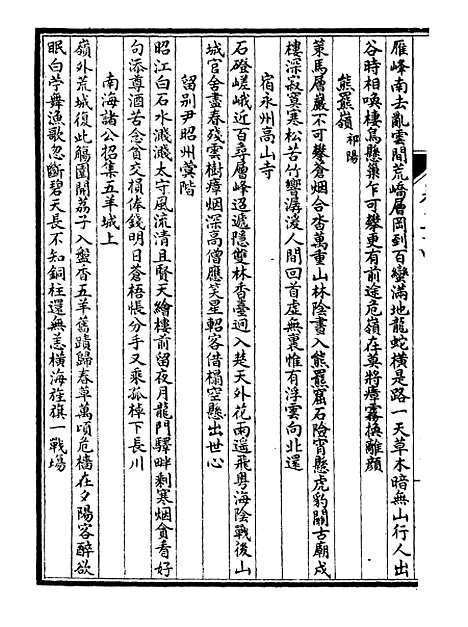 雁峰南去亂雲間荒嶠層岡到百蠻滿地龍蛇橫是路一天草木暗無山行人出
谷時相喚棲鳥懸巢乍可攀更有前途危嶺在莫將瘴霧換離顔
熊羆嶺 祁陽
策馬層巖不可攀蒼烟合沓萬重山林陰晝入熊羆窟石險宵懸虎豹關古廟戍
樓深寂寞寒松苦竹響潺湲人間回首虛無裏惟有浮雲向北還
宿永州高山寺
石磴嵯峨近百尋層峰迢遞隱雙林香臺迥入楚天外花雨遥飛粤海陰戰後山
城官舍盡春殘雲樹瘴烟深高僧應笑星軺客借榻空懸出世心
留别尹昭州蓂階
昭江白石水濺濺太守風流清且賢天繪樓前留夜月龍門驛畔剩寒烟貪看好
句添尊酒苦念貧交損俸錢明日蒼梧悵分手又乘孤棹下長川
南海諸公招集五羊城上
嶺外荒城復此觴園開荔子入盤香五羊舊蹟歸春草萬頃危檣在夕陽客醉欲
眠白苧舞漁歌忽斷碧天長不知銅柱還無恙橫海旌旗一戰場